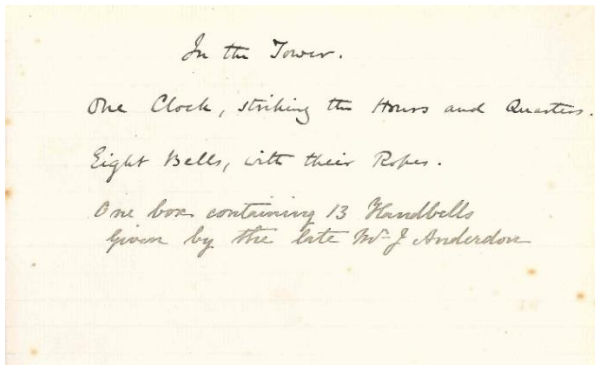 In the Tower.
One Clock, striking the Hours and Quarters.
Eight Bells, with their Ropes.
One box containing 13 Handbells
given by the late Mr J Anderdon